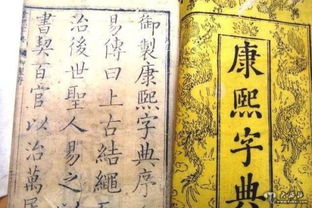 康熙字典
御製康熙字典序
易傳曰上古結繩而
治後世聖人易之
書契百官以治萬民